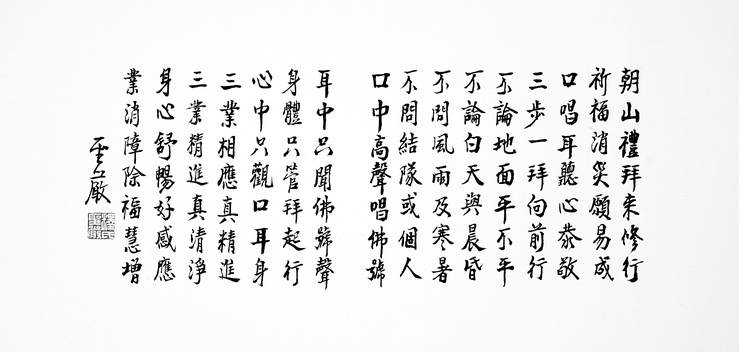 朝山禮拜來修行
祈福消災願易成
口唱耳聽心恭敬
三步一拜向前行
不論地面平不平
不論白天與晨昏
不問風雨及寒暑
不問結隊或個人
口中高聲唱佛號
耳中只聞佛號聲
身體只管拜起行
心中只觀口耳身
三業相應真精進
三業精進真清淨
身心舒暢好感應
業消障除福慧增
聖嚴